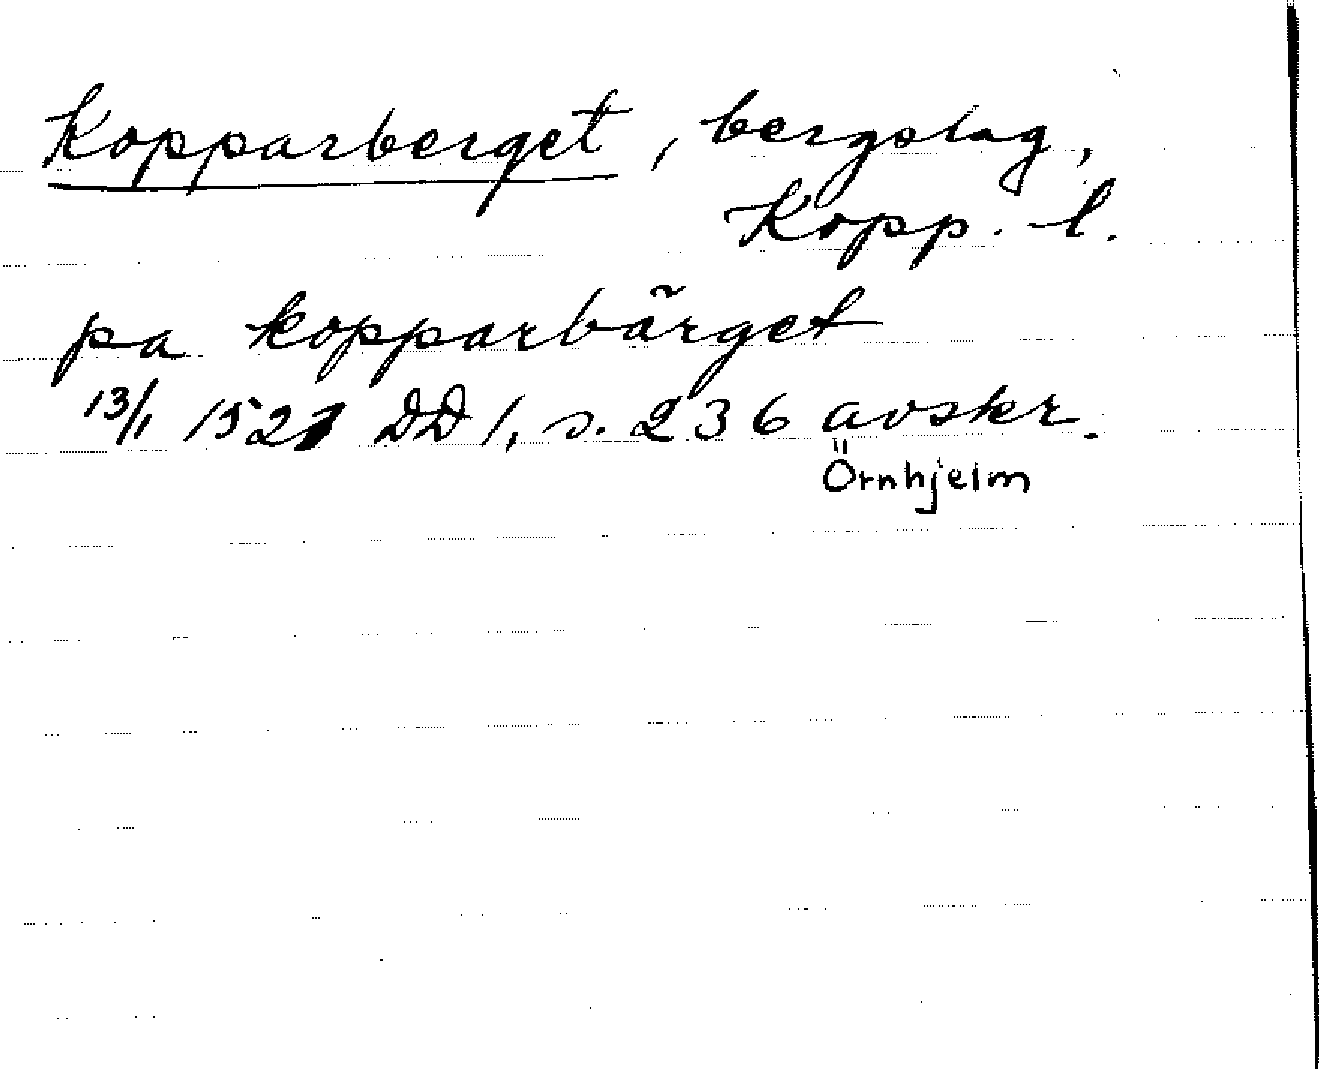 Kopparberget, bergslag,
Kopp. l.
pa kopparbärget
13/1 1521 DD 1, s. 236 avskr.
Örnhjelm